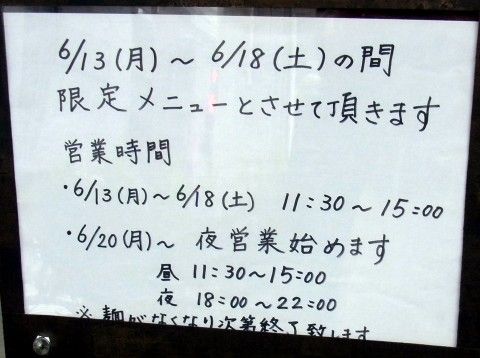 6/13(月)～6/18(土)の間
限定メニューとさせて頂きます
営業時間
・6/13(月)～6/18(土) 11:30～15:00
・6/20(月)～ 夜営業始めます
昼 11:30～15:00
夜 18:00～22:00
※麺がなくなり次第終了致します